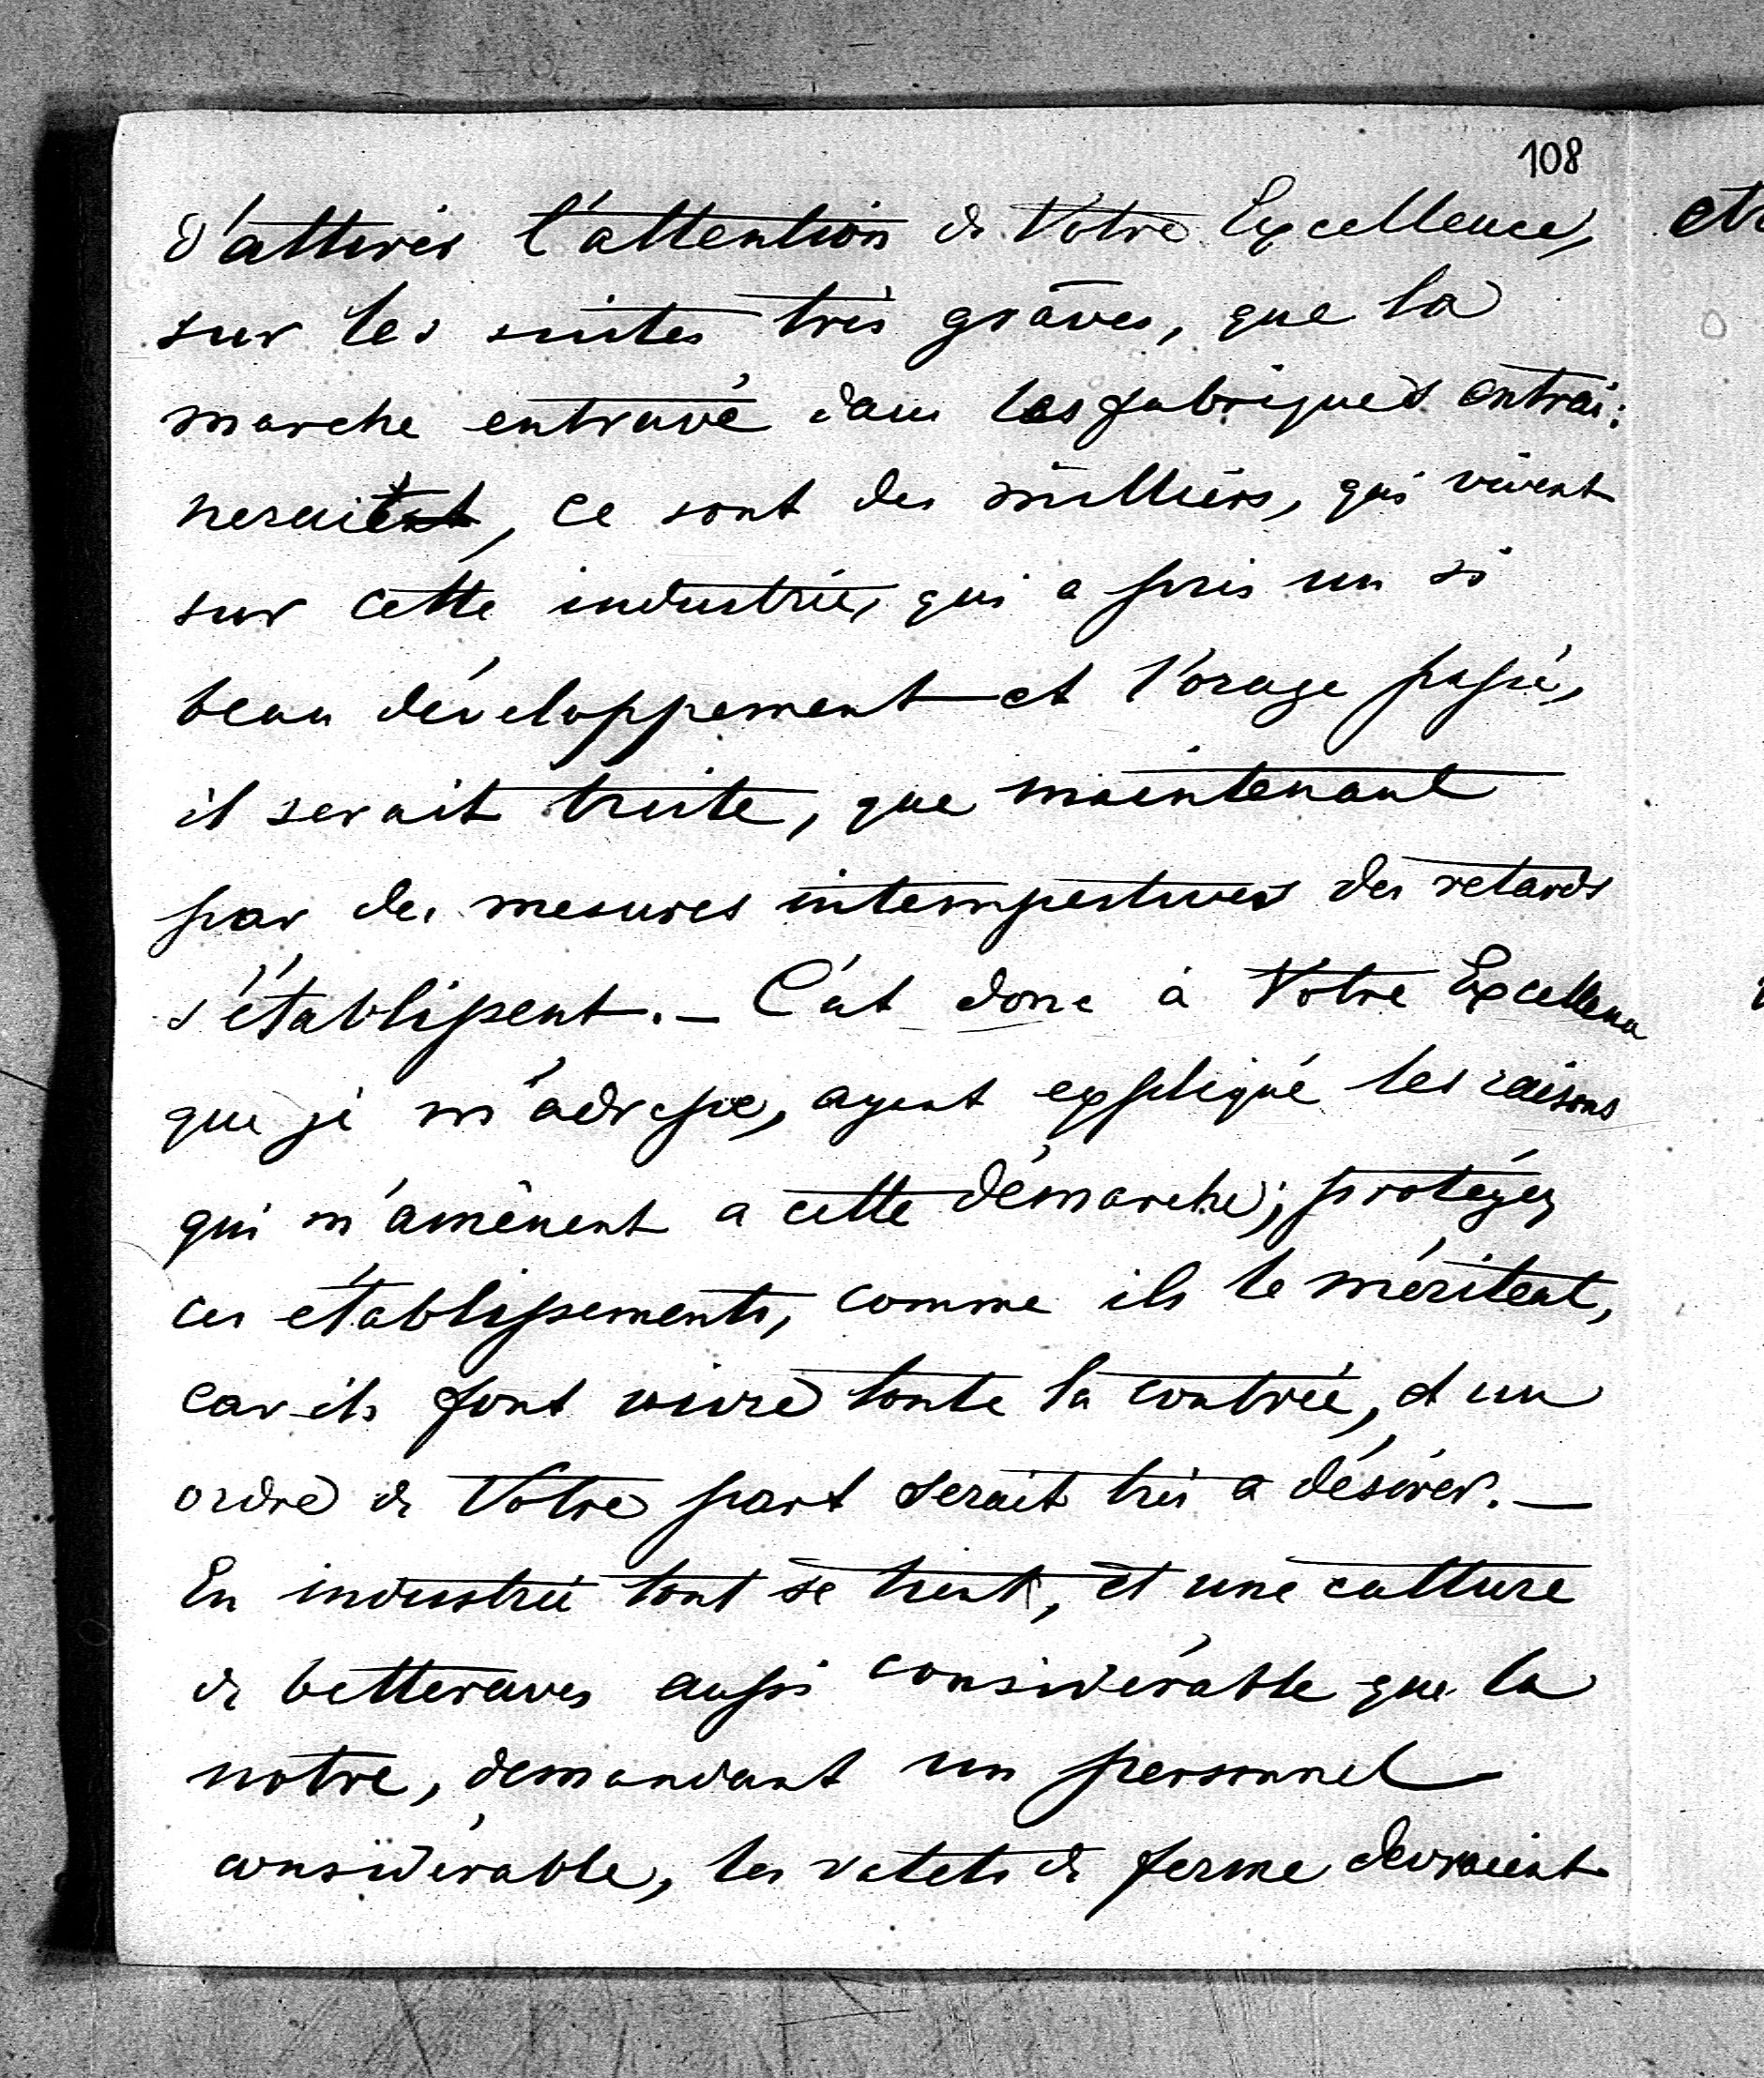 108
d'attirer l'attention de Votre Excellence,
sur les suites très graves, que la
marche entravé dans les fabriques entrai:
nerait, ce sont des milliers, qui vivent
sur cette industrie, qui a pris un si
beau développement et l'orage passé,
il serait triste, que maintenant
par des mesures intempestives des retards
s'établissent. — C'est donc à Votre Excellence
que je m'adresse, ayant expliqué les raisons
qui m'amènent a cette démarche; protégez
ces établissements, comme ils le méritent,
car ils font vivre toute la contrée, et un
ordre de Votre part serait très a désirer. —
En industrie tout se tient, et une culture
de betteraves aussi considérable que la
notre, demandant un personnel
considérable, les valets de ferme devraient